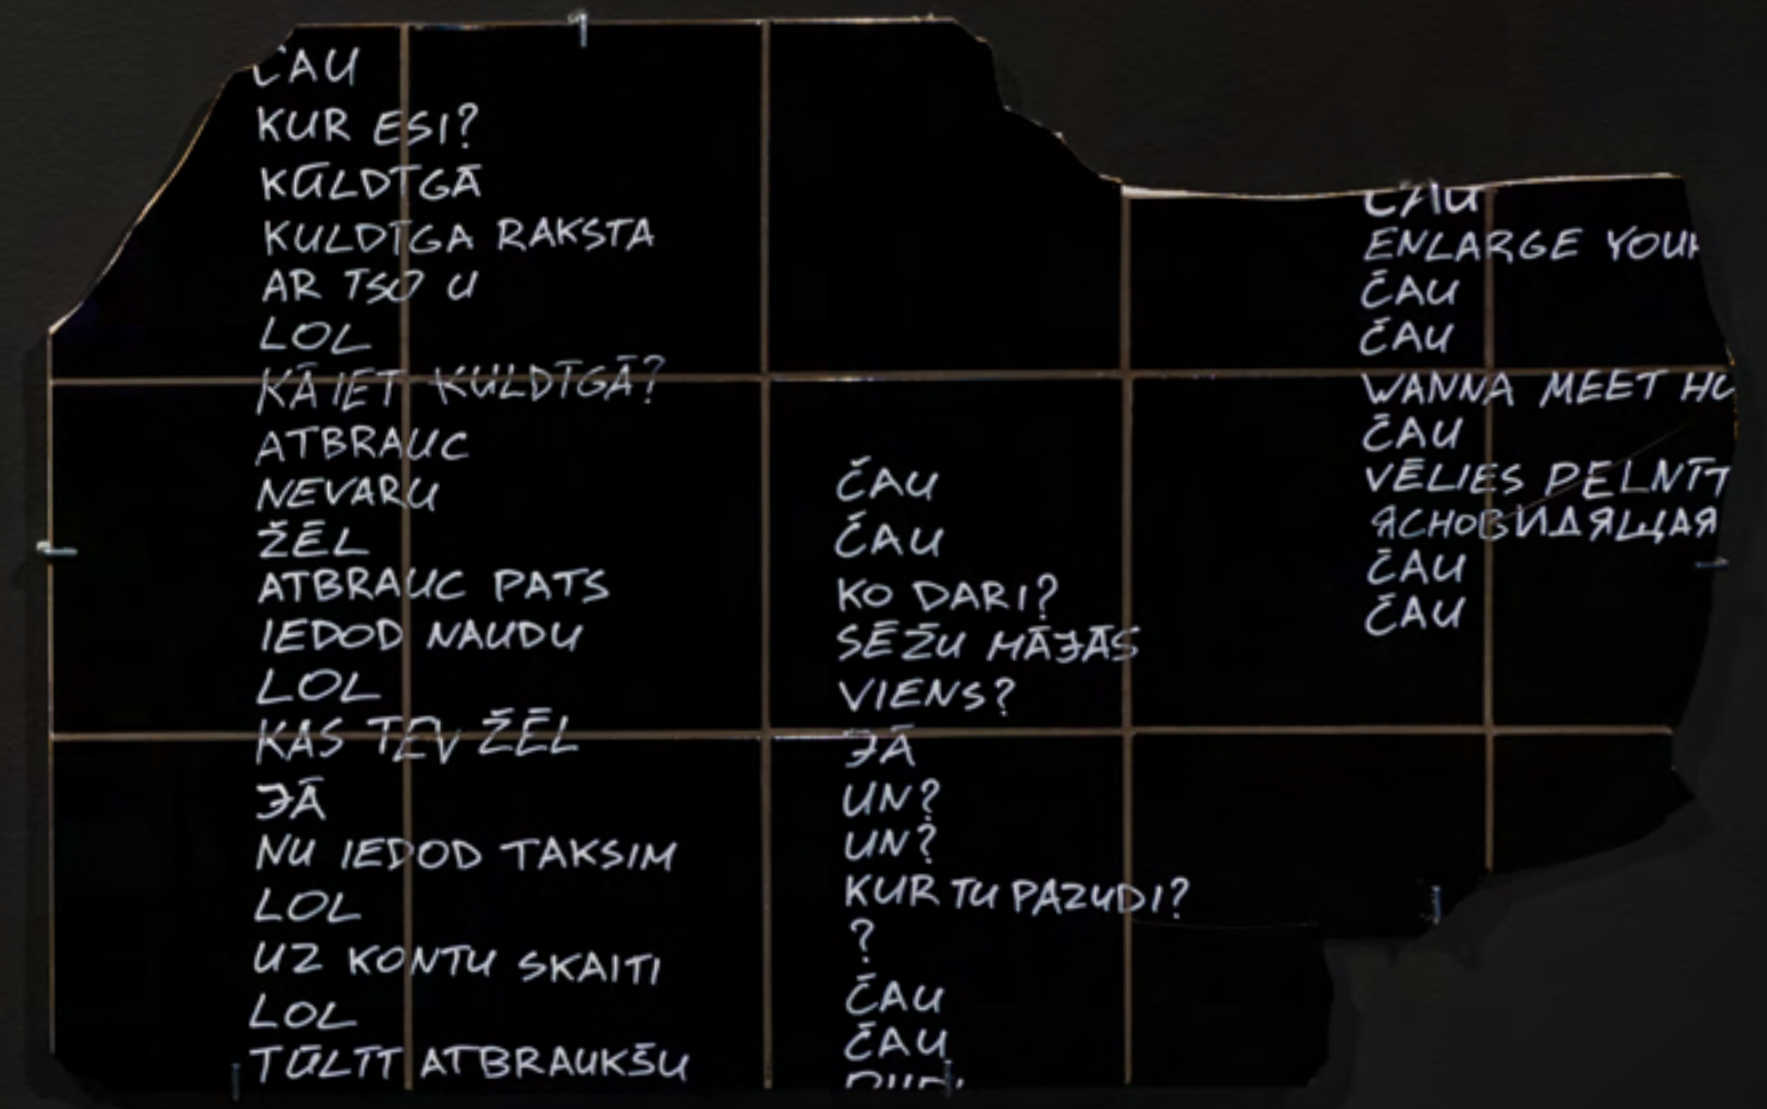 ČAU
KUR ESI?
KŪLDĪGĀ
KULDĪGA RAKSTA
AR TSO U
LOL
KĀ IET KULDĪGĀ?
ATBRAUC
NEVARU
ŽĒL
ATBRAUC PATS
IEDOD NAUDU
LOL
KAS TEV ŽĒL
JĀ
NU IEDOD TAKSIM
LOL
UZ KONTU SKAITI
LOL
TŪLĪT ATBRAUKŠU
ČAU
ČAU
KO DARI?
SĒŽU MĀJĀS
VIENS?
JĀ
UN?
UN?
KUR TU PAZUDI?
?
ČAU
ČAU
ČAU
ENLARGE YOUR
ČAU
ČAU
WANNA MEET
ČAU
VĒLIES PELNĪT
ЯСНОВИДЯЩАЯ
ČAU
ČAU